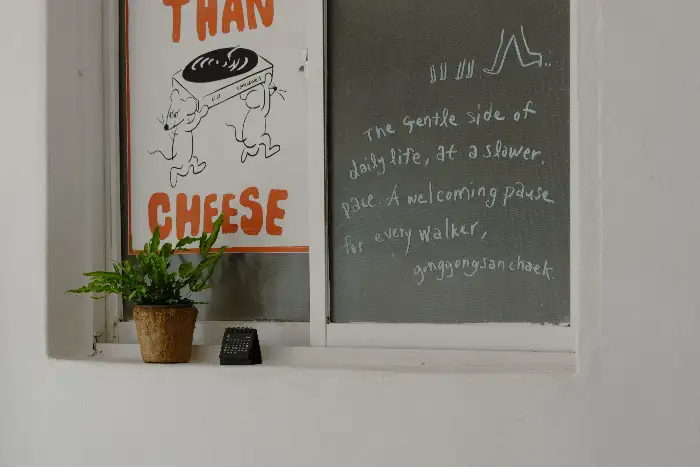 THAN
CHEESE
The Gentle side of
daily life, at a slower.
pace. A welcoming pause
for every walker,
gonggongsanchaek.